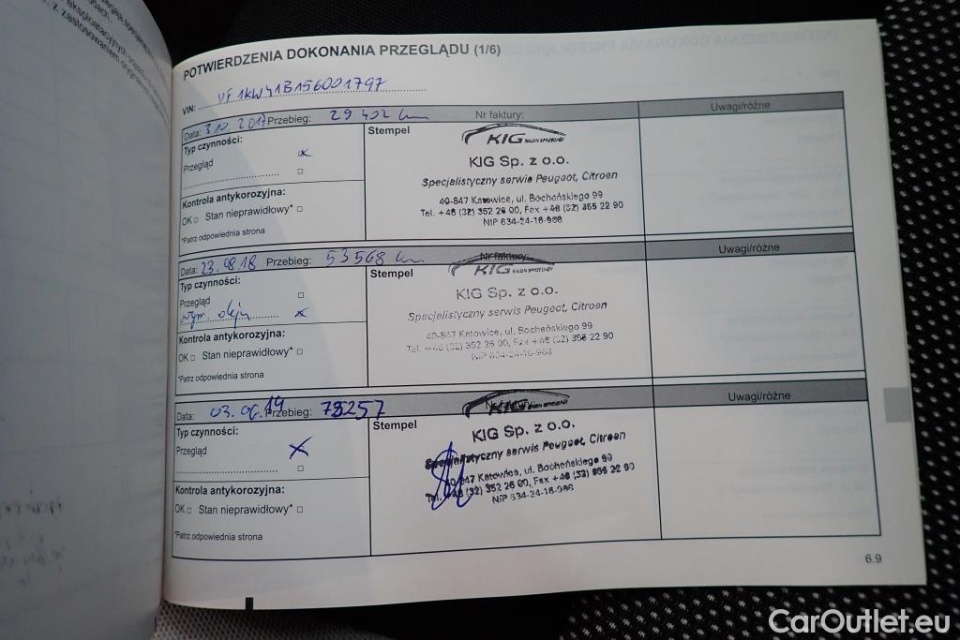 z zastosowaniem
POTWIERDZENIA DOKONANIA PRZEGLĄDU (1/6)
VIN: VF1KW41B156001797
Data: 3.10.2017 Przebieg: 29 402 km Nr faktury: Uwagi/różne
Typ czynności: Stempel
Przegląd x
KIG SALON SPRZEDAŻY
KIG Sp. z o.o.
Specjalistyczny serwis Peugeot, Citroen
40-847 Katowice, ul. Bocheńskiego 99
Tel. +48 (32) 352 26 00, Fax +48 (32) 355 22 90
NIP 634-24-16-968
Kontrola antykorozyjna:
OK □ Stan nieprawidłowy* □
*Patrz odpowiednia strona
Data: 23.08.18 Przebieg: 53568 km Nr faktury: Uwagi/różne
Typ czynności: Stempel
Przegląd □
wym. oleju x
KIG SALON SPRZEDAŻY
KIG Sp. z o.o.
Specjalistyczny serwis Peugeot, Citroen
40-847 Katowice, ul. Bocheńskiego 99
Tel. +48 (32) 352 26 00, Fax +48 (32) 355 22 90
NIP 634-24-16-968
Kontrola antykorozyjna:
OK □ Stan nieprawidłowy* □
*Patrz odpowiednia strona
Data: 03.06.19 Przebieg: 75257 Uwagi/różne
Typ czynności: Stempel
Przegląd x
KIG SALON SPRZEDAŻY
KIG Sp. z o.o.
Specjalistyczny serwis Peugeot, Citroen
40-847 Katowice, ul. Bocheńskiego 99
Tel. +48 (32) 352 26 00, Fax +48 (32) 355 22 90
NIP 634-24-16-968
Kontrola antykorozyjna:
OK □ Stan nieprawidłowy* □
*Patrz odpowiednia strona
6.9
CarOutlet.eu